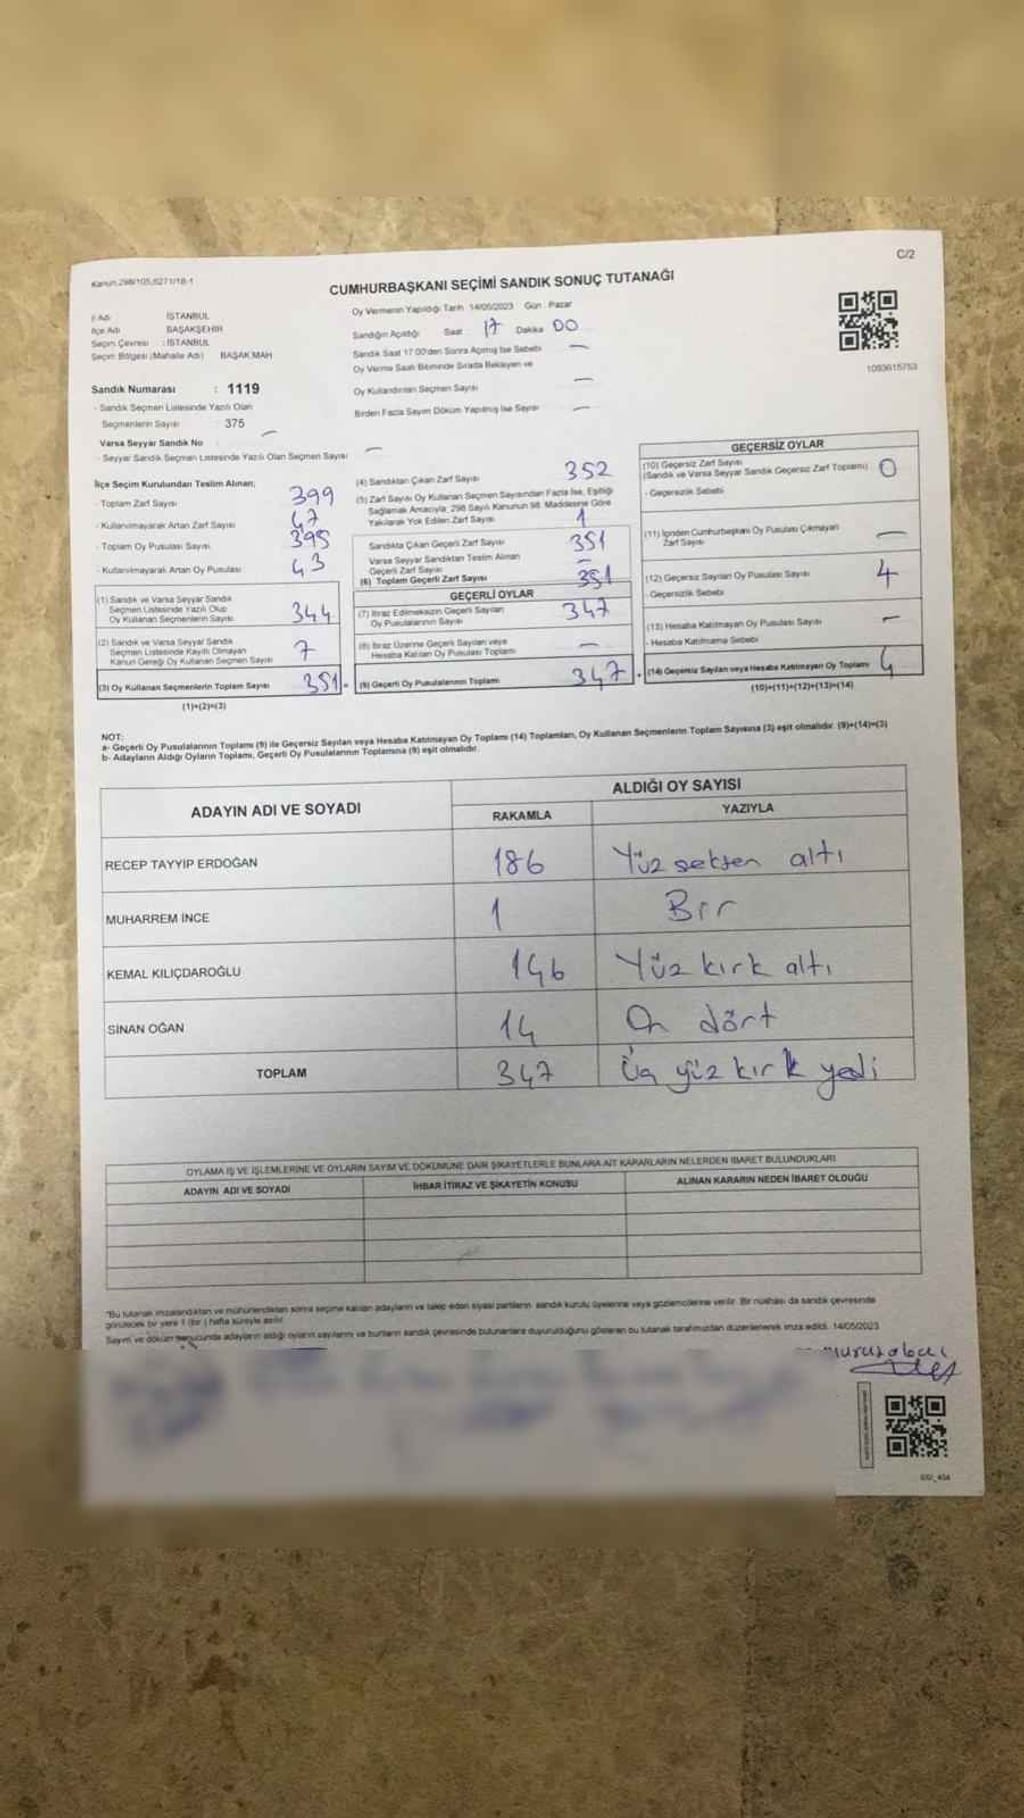 Kanun:298/105,6271/18-1
C/2
CUMHURBAŞKANI SEÇİMİ SANDIK SONUÇ TUTANAĞI
İl Adı : İSTANBUL
İlçe Adı : BAŞAKŞEHİR
Seçim Çevresi : İSTANBUL
Seçim Bölgesi (Mahalle Adı) BAŞAK MAH
Sandık Numarası : 1119
- Sandık Seçmen Listesinde Yazılı Olan
Seçmenlerin Sayısı : 375
Varsa Seyyar Sandık No —
- Seyyar Sandık Seçmen Listesinde Yazılı Olan Seçmen Sayısı —
Oy Vermenin Yapıldığı Tarih 14/05/2023 Gün : Pazar
Sandığın Açıldığı Saat 17 Dakika 00
Sandık Saat 17:00'den Sonra Açılmış İse Sebebi —
Oy Verme Saati Bitiminde Sırada Bekleyen ve
Oy Kullandırılan Seçmen Sayısı —
Birden Fazla Sayım Döküm Yapılmış İse Sayısı —
1093615753
İlçe Seçim Kurulundan Teslim Alınan;
- Toplam Zarf Sayısı 399
- Kullanılmayarak Artan Zarf Sayısı 47
- Toplam Oy Pusulası Sayısı 395
- Kullanılmayarak Artan Oy Pusulası 43
(1) Sandık ve Varsa Seyyar Sandık
Seçmen Listesinde Yazılı Olup
Oy Kullanan Seçmenlerin Sayısı 344
(2) Sandık ve Varsa Seyyar Sandık
Seçmen Listesinde Kayıtlı Olmayan
Kanun Gereği Oy Kullanan Seçmen Sayısı 7
(3) Oy Kullanan Seçmenlerin Toplam Sayısı 351
(1)+(2)=(3)
(4) Sandıktan Çıkan Zarf Sayısı 352
(5) Zarf Sayısı Oy Kullanan Seçmen Sayısından Fazla İse, Eşitliği
Sağlamak Amacıyla; 298 Sayılı Kanunun 98. Maddesine Göre
Yakılarak Yok Edilen Zarf Sayısı 1
Sandıkta Çıkan Geçerli Zarf Sayısı 351
Varsa Seyyar Sandıktan Teslim Alınan
Geçerli Zarf Sayısı —
(6) Toplam Geçerli Zarf Sayısı 351
GEÇERLİ OYLAR
(7) İtiraz Edilmeksizin Geçerli Sayılan
Oy Pusulasının Sayısı 347
(8) İtiraz Üzerine Geçerli Sayılan veya
Hesaba Katılan Oy Pusulası Toplamı —
(9) Geçerli Oy Pusulalarının Toplamı 347
GEÇERSİZ OYLAR
(10) Geçersiz Zarf Sayısı
(Sandık ve Varsa Seyyar Sandık Geçersiz Zarf Toplamı) 0
- Geçersizlik Sebebi
(11) İçinden Cumhurbaşkanı Oy Pusulası Çıkmayan
Zarf Sayısı —
(12) Geçersiz Sayılan Oy Pusulası Sayısı 4
- Geçersizlik Sebebi
(13) Hesaba Katılmayan Oy Pusulası Sayısı —
- Hesaba Katılmama Sebebi
(14) Geçersiz Sayılan veya Hesaba Katılmayan Oy Toplamı 4
(10)+(11)+(12)+(13)=(14)
NOT:
a- Geçerli Oy Pusulalarının Toplamı (9) ile Geçersiz Sayılan veya Hesaba Katılmayan Oy Toplamı (14) Toplamları, Oy Kullanan Seçmenlerin Toplam Sayısına (3) eşit olmalıdır. (9)+(14)=(3)
b- Adayların Aldığı Oyların Toplamı, Geçerli Oy Pusulalarının Toplamına (9) eşit olmalıdır.
ADAYIN ADI VE SOYADI ALDIĞI OY SAYISI
RAKAMLA YAZIYLA
RECEP TAYYİP ERDOĞAN 186 Yüz seksen altı
MUHARREM İNCE 1 Bir
KEMAL KILIÇDAROĞLU 146 Yüz kırk altı
SİNAN OĞAN 14 On dört
TOPLAM 347 Üç yüz kırk yedi
OYLAMA İŞ VE İŞLEMLERİNE VE OYLARIN SAYIM VE DÖKÜMÜNE DAİR ŞİKAYETLERLE BUNLARA AİT KARARLARIN NELERDEN İBARET BULUNDUKLARI
ADAYIN ADI VE SOYADI İHBAR İTİRAZ VE ŞİKAYETİN KONUSU ALINAN KARARIN NEDEN İBARET OLDUĞU
*Bu tutanak imzalandıktan ve mühürlendikten sonra seçime katılan adayların ve talep eden siyasi partilerin sandık kurulu üyelerine veya gözlemcilerine verilir. Bir nüshası da sandık çevresinde
görülecek bir yere 1 (bir) hafta süreyle asılır.
Sayım ve döküm sonucunda adayların aldığı oyların sayılarını ve bunların sandık çevresinde bulunanlara duyurulduğunu gösteren bu tutanak tarafımızdan düzenlenerek imza edildi. 14/05/2023